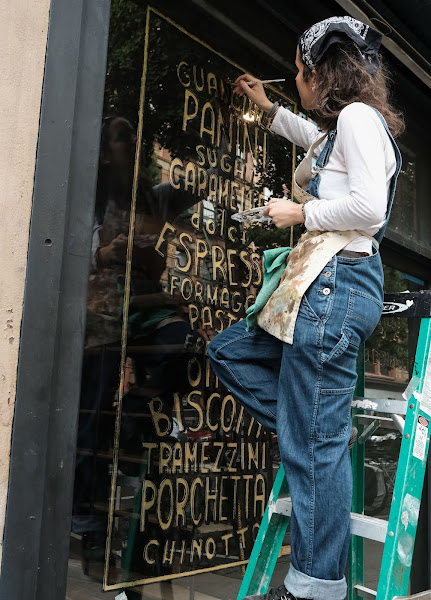 GUANCIALE
PANINI
SUGH
CARAMEL
dolci
ESPRESS
FORMAGG
PAST
BISCOTTI
TRAMEZZINI
PORCHETTA
CHINOTTO